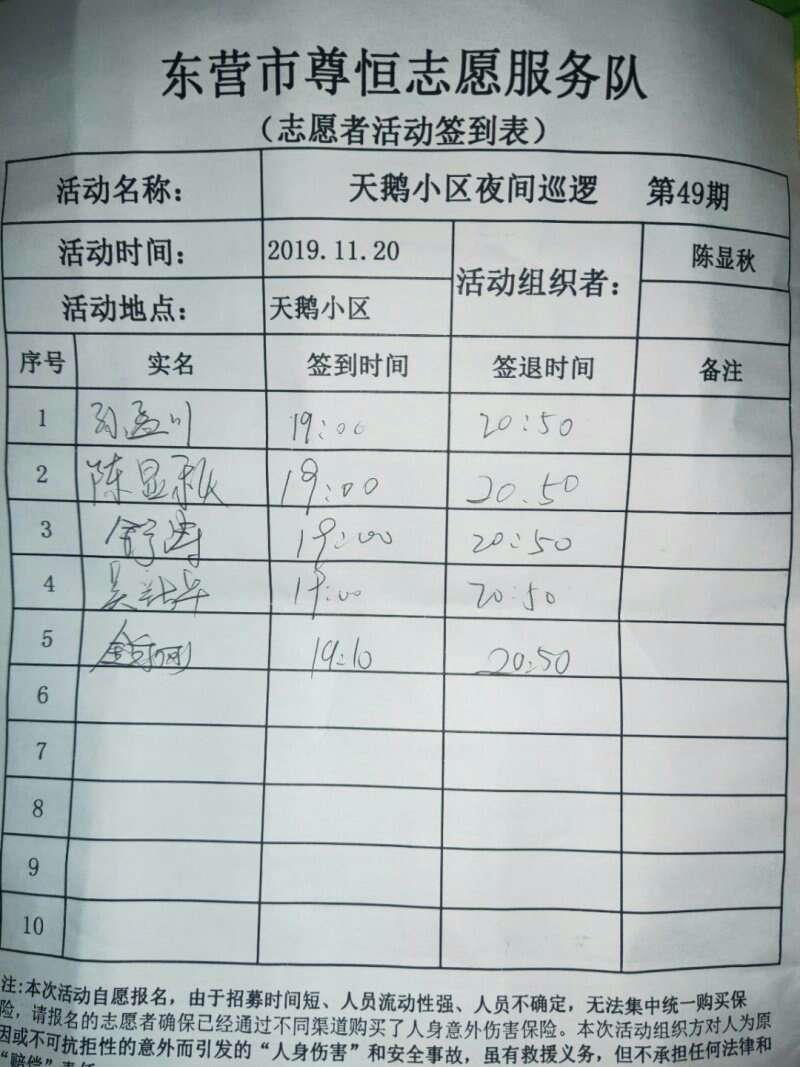 东营市尊恒志愿服务队
（志愿者活动签到表）
活动名称： 天鹅小区夜间巡逻 第49期
活动时间： 2019.11.20 活动组织者： 陈显秋
活动地点： 天鹅小区
序号 实名 签到时间 签退时间 备注
1 19:00 20:50
2 陈显秋 19:00 20.50
3 19:00 20:50
4 19:00 20:50
5 19:10 20:50
6
7
8
9
10
注:本次活动自愿报名，由于招募时间短、人员流动性强、人员不确定，无法集中统一购买保
险，请报名的志愿者确保已经通过不同渠道购买了人身意外伤害保险。本次活动组织方对人为原
因或不可抗拒性的意外而引发的“人身伤害”和安全事故，虽有救援义务，但不承担任何法律和
“赔偿”责任